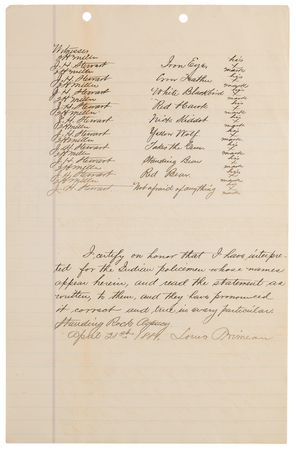 Witnesses
J. H. Stewart Iron Eyes his
mark
J. H. Stewart his
mark
J. H. Stewart White Blackbird his
mark
J. H. Stewart Red Hawk his
mark
J. H. Stewart his
mark
J. H. Stewart Yellow Wolf his
mark
J. H. Stewart Takes the Gun his
mark
J. H. Stewart Standing Bear his
mark
J. H. Stewart Red Bear his
mark
J. H. Stewart Not afraid of anything his
mark
I certify on honor that I have interpre-
ted for the Indian policemen whose names
appear herein, and read the statement as
written, to them, and they have pronounced
it correct and true in every particular.
Standing Rock Agency
April 21st Louis Primeau